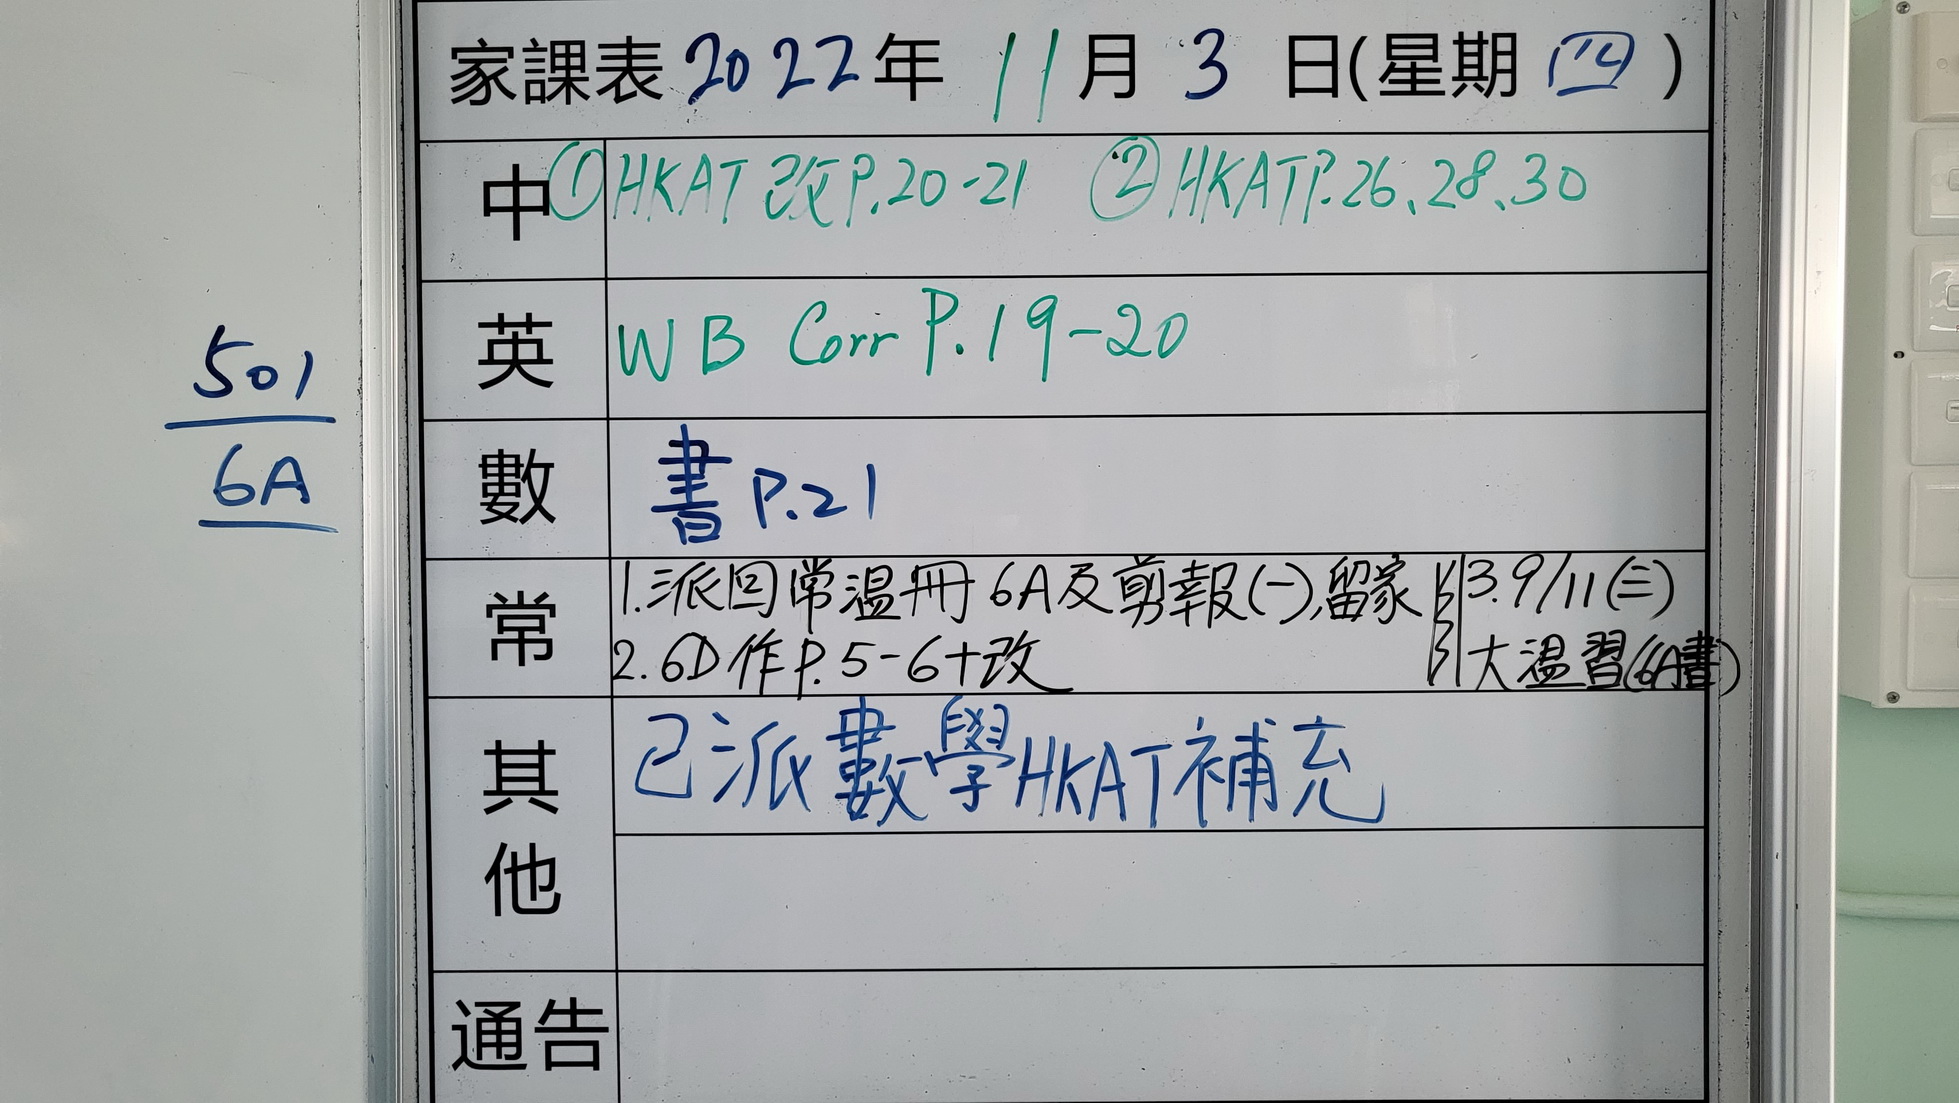 家課表 2022年 11月 3日(星期四)
中 ①HKAT 改P.20-21 ②HKAT P.26、28、30
英 WB Corr P.19-20
501
6A
數 書 P.21
常 1.派回常溫冊 6A及剪報(一),留家
2.6D作P.5-6+改
3.9/11(三)
大溫習(6A書)
其他 已派數學HKAT補充
通告